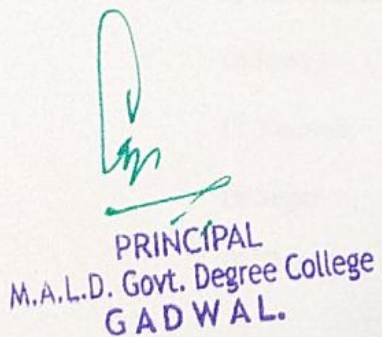 PRINCIPAL
M.A.L.D. Govt. Degree College
GADWAL.